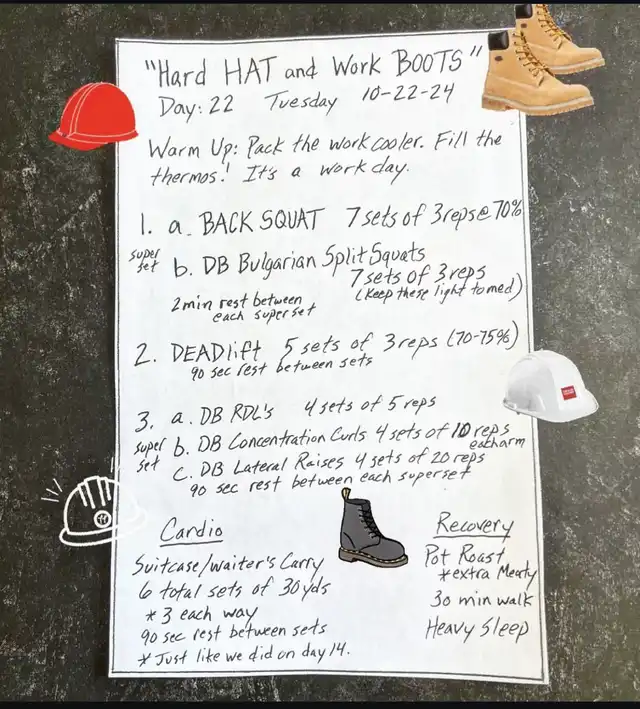 "Hard HAT and Work BOOTS"
Day: 22 Tuesday 10-22-24
Warm Up: Pack the work cooler. Fill the
thermos! It's a work day.
1. a. BACK SQUAT 7 sets of 3 reps @ 70%
super set
b. DB Bulgarian Split Squats
7 sets of 3 reps
(keep these light to med)
2 min rest between
each superset
2. DEADlift 5 sets of 3 reps (70-75%)
90 sec rest between sets
3. a. DB RDL's 4 sets of 5 reps
super set
b. DB Concentration Curls 4 sets of 10 reps
each arm
c. DB Lateral Raises 4 sets of 20 reps
90 sec rest between each superset
Cardio
Suitcase/waiter's Carry
6 total sets of 30 yds
* 3 each way
90 sec rest between sets
* Just like we did on day 14.
Recovery
Pot Roast
*extra Meaty
30 min walk
Heavy Sleep